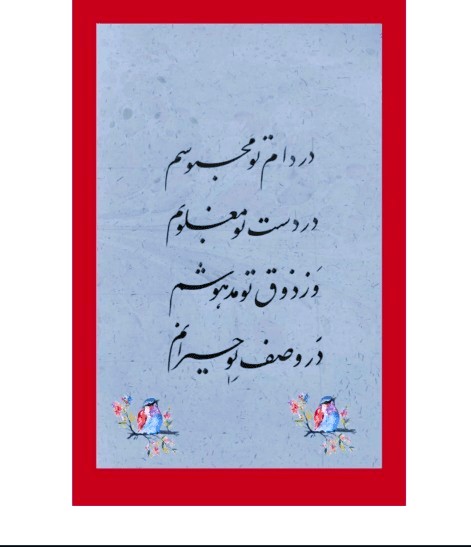 در دام تو محبوسم
در دست تو مغلوبم
وَز ذوق تو مدهوشم
دَر وصف تو حیرانم